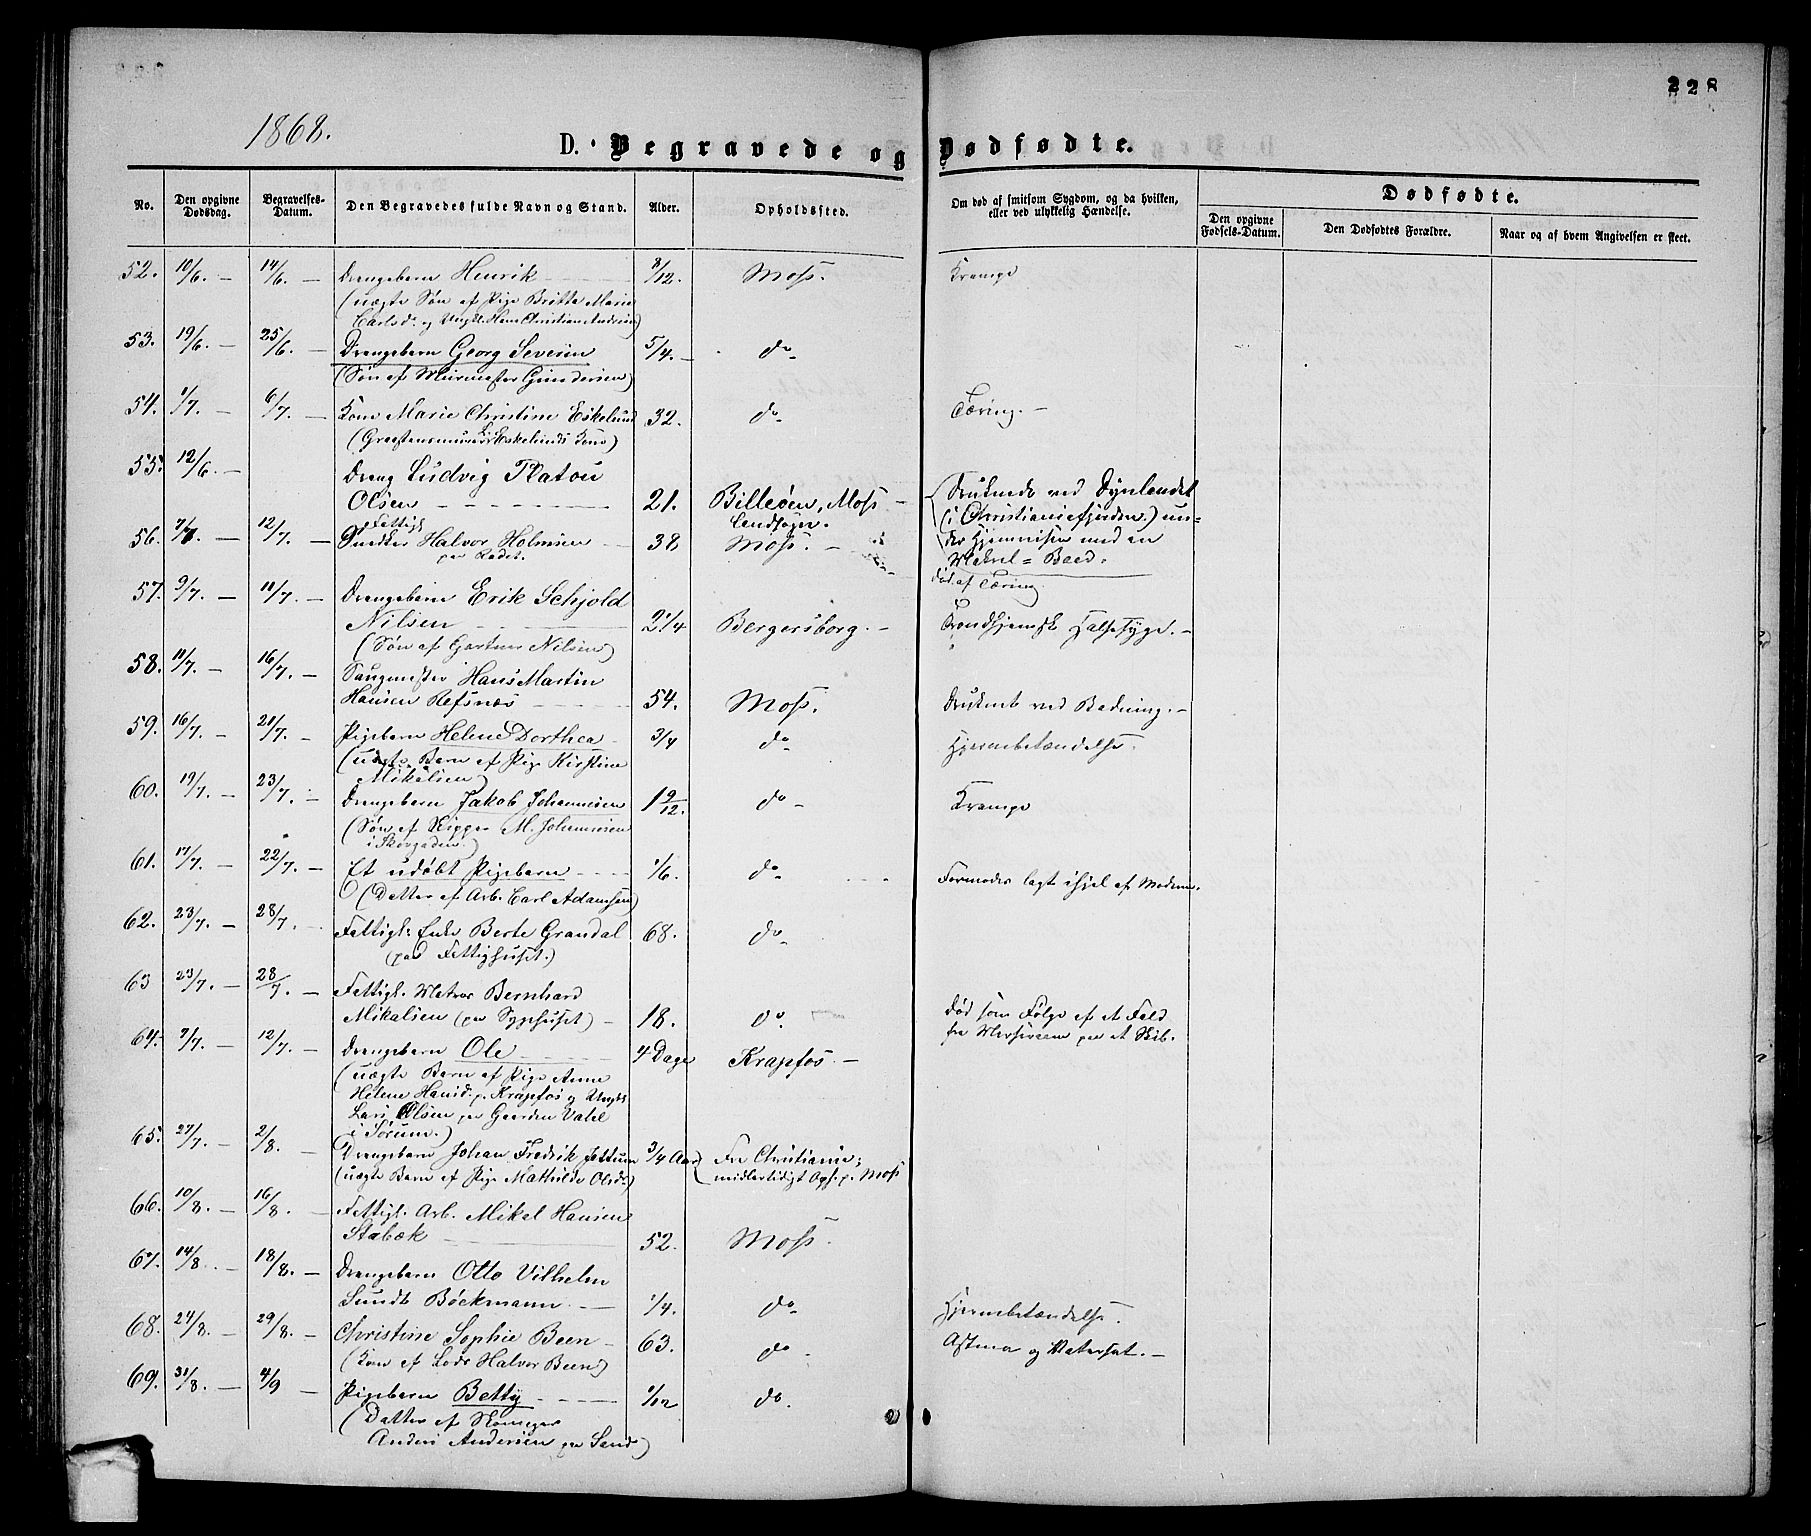 228
1868.
D. Begravede og Dødfødte.
No.
Den opgivne Dødsdag.
Begravelses-Datum.
Den Begravedes fulde Navn og Stand.
Alder.
Opholdssted.
Om død af smitsom Sygdom, og da hvilken, eller ved ulykkelig Hændelse.
Dødfødte.
Den opgivne Fødsels-Datum.
Den Dødfødtes Forældre.
Naar og af hvem Angivelsen er skeet.
52. 10/6. — 14/6. — Drengebarn Henrik 3/12. Moss. Krampe
(uægte Søn af Pige Britta Marie
Carlsd. og Ungk. Hans Christian Andersen)
53. 19/6. — 25/6. — Drengebarn Georg Severin 5/4. — do
(Søn af Murmester Gundersen)
54. 1/7. — 6/7. — Kone Marie Christine Eskelund 32. do Tæring. —
(Graastensmurer Eskelunds Kone)
55. 12/6. — Dreng Ludvig Platou
Olsen 21. Billeøen, Moss Landsogn. Druknede ved Dynlandet
(i Christianiafjorden) un=
der Hjemreisen med en
Makrel=Baad.
56. 7/7. — 12/7. — Fattigl. Snedker Halvor Holmsen 38, Moss. — død af Tæring
paa Radet.
57. 9/7. — 11/7. — Drengebarn Erik Schjold
Nilsen 2 1/4 Bergersborg. — Trondhjemsk Halssyge. —
(Søn af Gartner Nilsen)
58. 11/7. — 16/7. — Saugmester Hans Martin
Hansen Refsnæs 54. Moss. Druknet ved Badning. —
59. 16/7. — 21/7. — Pigebarn Helene Dorthea 3/4 do Hjernebetændelse.
(uægte Barn af Pige Kirstine
Mikalsen)
60. 19/7. — 23/7. — Drengebarn Jakob Johannesen 1 9/12. do Krampe
(Søn af Skipper M. Johannesen
i Skovgaden.)
61. 17/7. — 22/7. — Et udøbt Pigebarn 1/6. do Formodes lagt ihjel af Moderen.
(Datter af Arb. Carl Adamsen)
62. 23/7. — 28/7. Fattigl. Enke Berte Grandal 68. do
(paa Fattighuset.)
63 23/7. — 28/7. — Fattigl. Matros Bernhard
Mikalsen (paa Sygehuset) — 18. do. Død som Følge af et Fald
fra Mersraaen paa et Skib.
64. 7/7. — 12/7. — Drengebarn Ole 4 Dage Krapfos —
(uægte Barn af Pige Anne
Helene Hansd. p. Krapfos og Ungk.
Lars Olsen paa Gaarden Vahl
i Sørum.)
65. 27/7. — 2/8. — Drengebarn Johan Fredrik Jettum 3/4 Aar Fra Christiania;
(uægte Barn af Pige Mathilde Olsd.) midlertidigt Oph. p. Moss
66. 10/8. — 16/8. — Fattigl. Arb. Mikal Hansen
Stabæk 52. Moss.
67. 14/8. — 18/8. — Drengebarn Otto Vilhelm
Sundt Böckmann 1/4. do Hjernebetændelse.
68. 24/8. — 29/8. — Christine Sophie Been 63. do Astma og Vatersot. —
(Kone af Lods Halvor Been)
69. 31/8. — 4/9 — Pigebarn Betty 1/12 do.
(Datter af
Anders Andersen paa Sand)